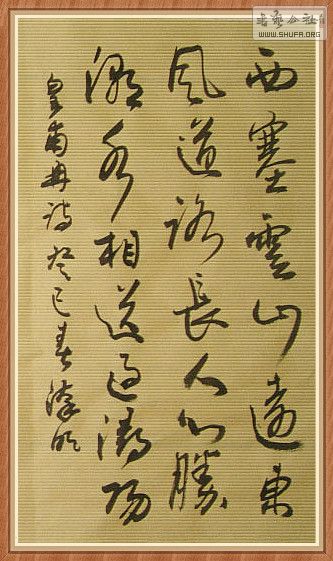 書法公社
WWW.SHUFA.ORG
西塞雲山遠東
風道路長人心勝
潮水相送過潯陽
皇甫冉詩癸巳春